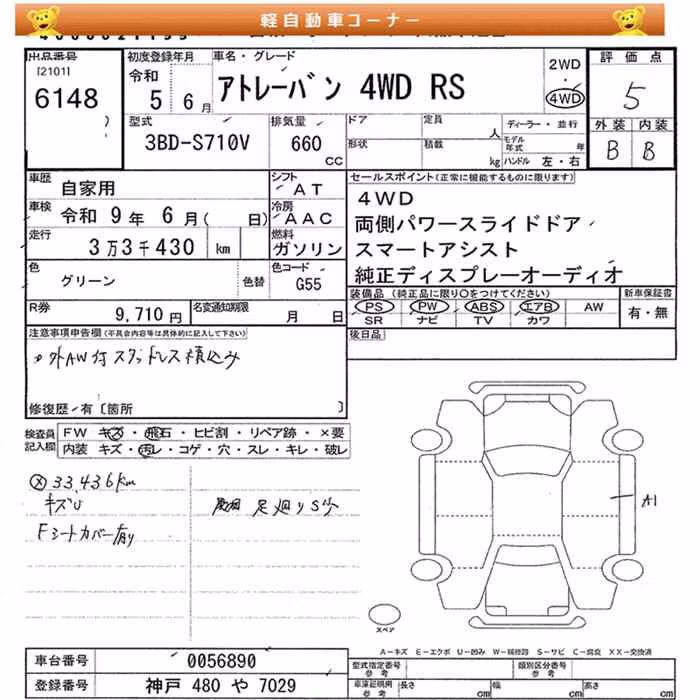 軽自動車コーナー
出品番号
[2101]
6148
初度登録年月
令和
5 6月
車名・グレード
アトレーバン 4WD RS
2WD
・
4WD
評価点
5
外装 内装
B B
型式
3BD-S710V
排気量
660
CC
ドア
定員
人
形状
積載
kg
ディーラー・並行
モデル年式
年
ハンドル 左・右
車歴
自家用
シフト
AT
車検
令和 9年 6月( 日)
冷房
AAC
走行
3万3千430 km
燃料
ガソリン
色
グリーン
色替
色コード
G55
R券
9,710 円
名変通知期限
月 日
セールスポイント(正常に機能するものに限ります)
4WD
両側パワースライドドア
スマートアシスト
純正ディスプレーオーディオ
装備品(純正品に限り○をつけてください)
PS PW ABS エアB AW
SR ナビ TV カワ
新車保証書
有・無
後日品
注意事項申告欄(不具合内容等は具体的に記入して下さい)
外AW付スタッドレス積込み
修復歴・有〔箇所 〕
検査員記入欄
FW キズ・飛石・ヒビ割・リペア跡・×要
内装 キズ・汚レ・コゲ・穴・スレ・キレ・破レ
33,436km
キズU
Fシートカバー有り
足廻りS少
A1
スペア
A-キズ E-エクボ U-凹み W-補修跡 S-サビ C-腐食 XX-交換済
車台番号
0056890
登録番号
神戸 480 や 7029
型式指定番号
参考
類別区分番号
参考
車庫証明用
参考
長さ
cm
幅
cm
高さ
cm